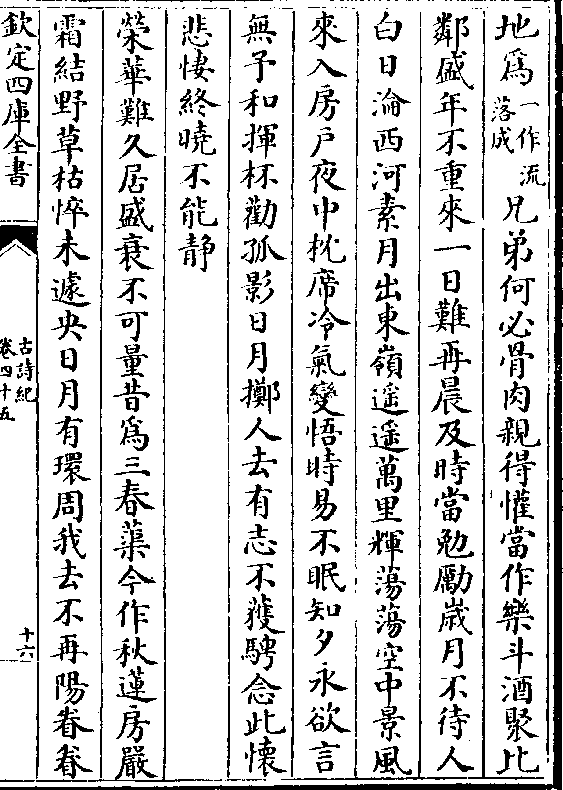 地爲一作流落成兄弟何必骨肉親得懽當作樂斗酒聚比
鄰盛年不重來一日難再晨及時當勉勵歲月不待人
白日淪西河素月出東嶺遥遥萬里輝蕩蕩空中景風
來入房户夜中枕席冷氣變悟時易不眠知夕永欲言
無予和揮杯勸孤影日月擲人去有志不獲騁念此懷
悲悽終曉不能静
榮華難久居盛衰不可量昔爲三春蕖今作秋蓮房嚴
霜結野草枯悴未遽央日月有環周我去不再陽眷眷
欽定四庫全書
古詩紀
卷四十五
十六